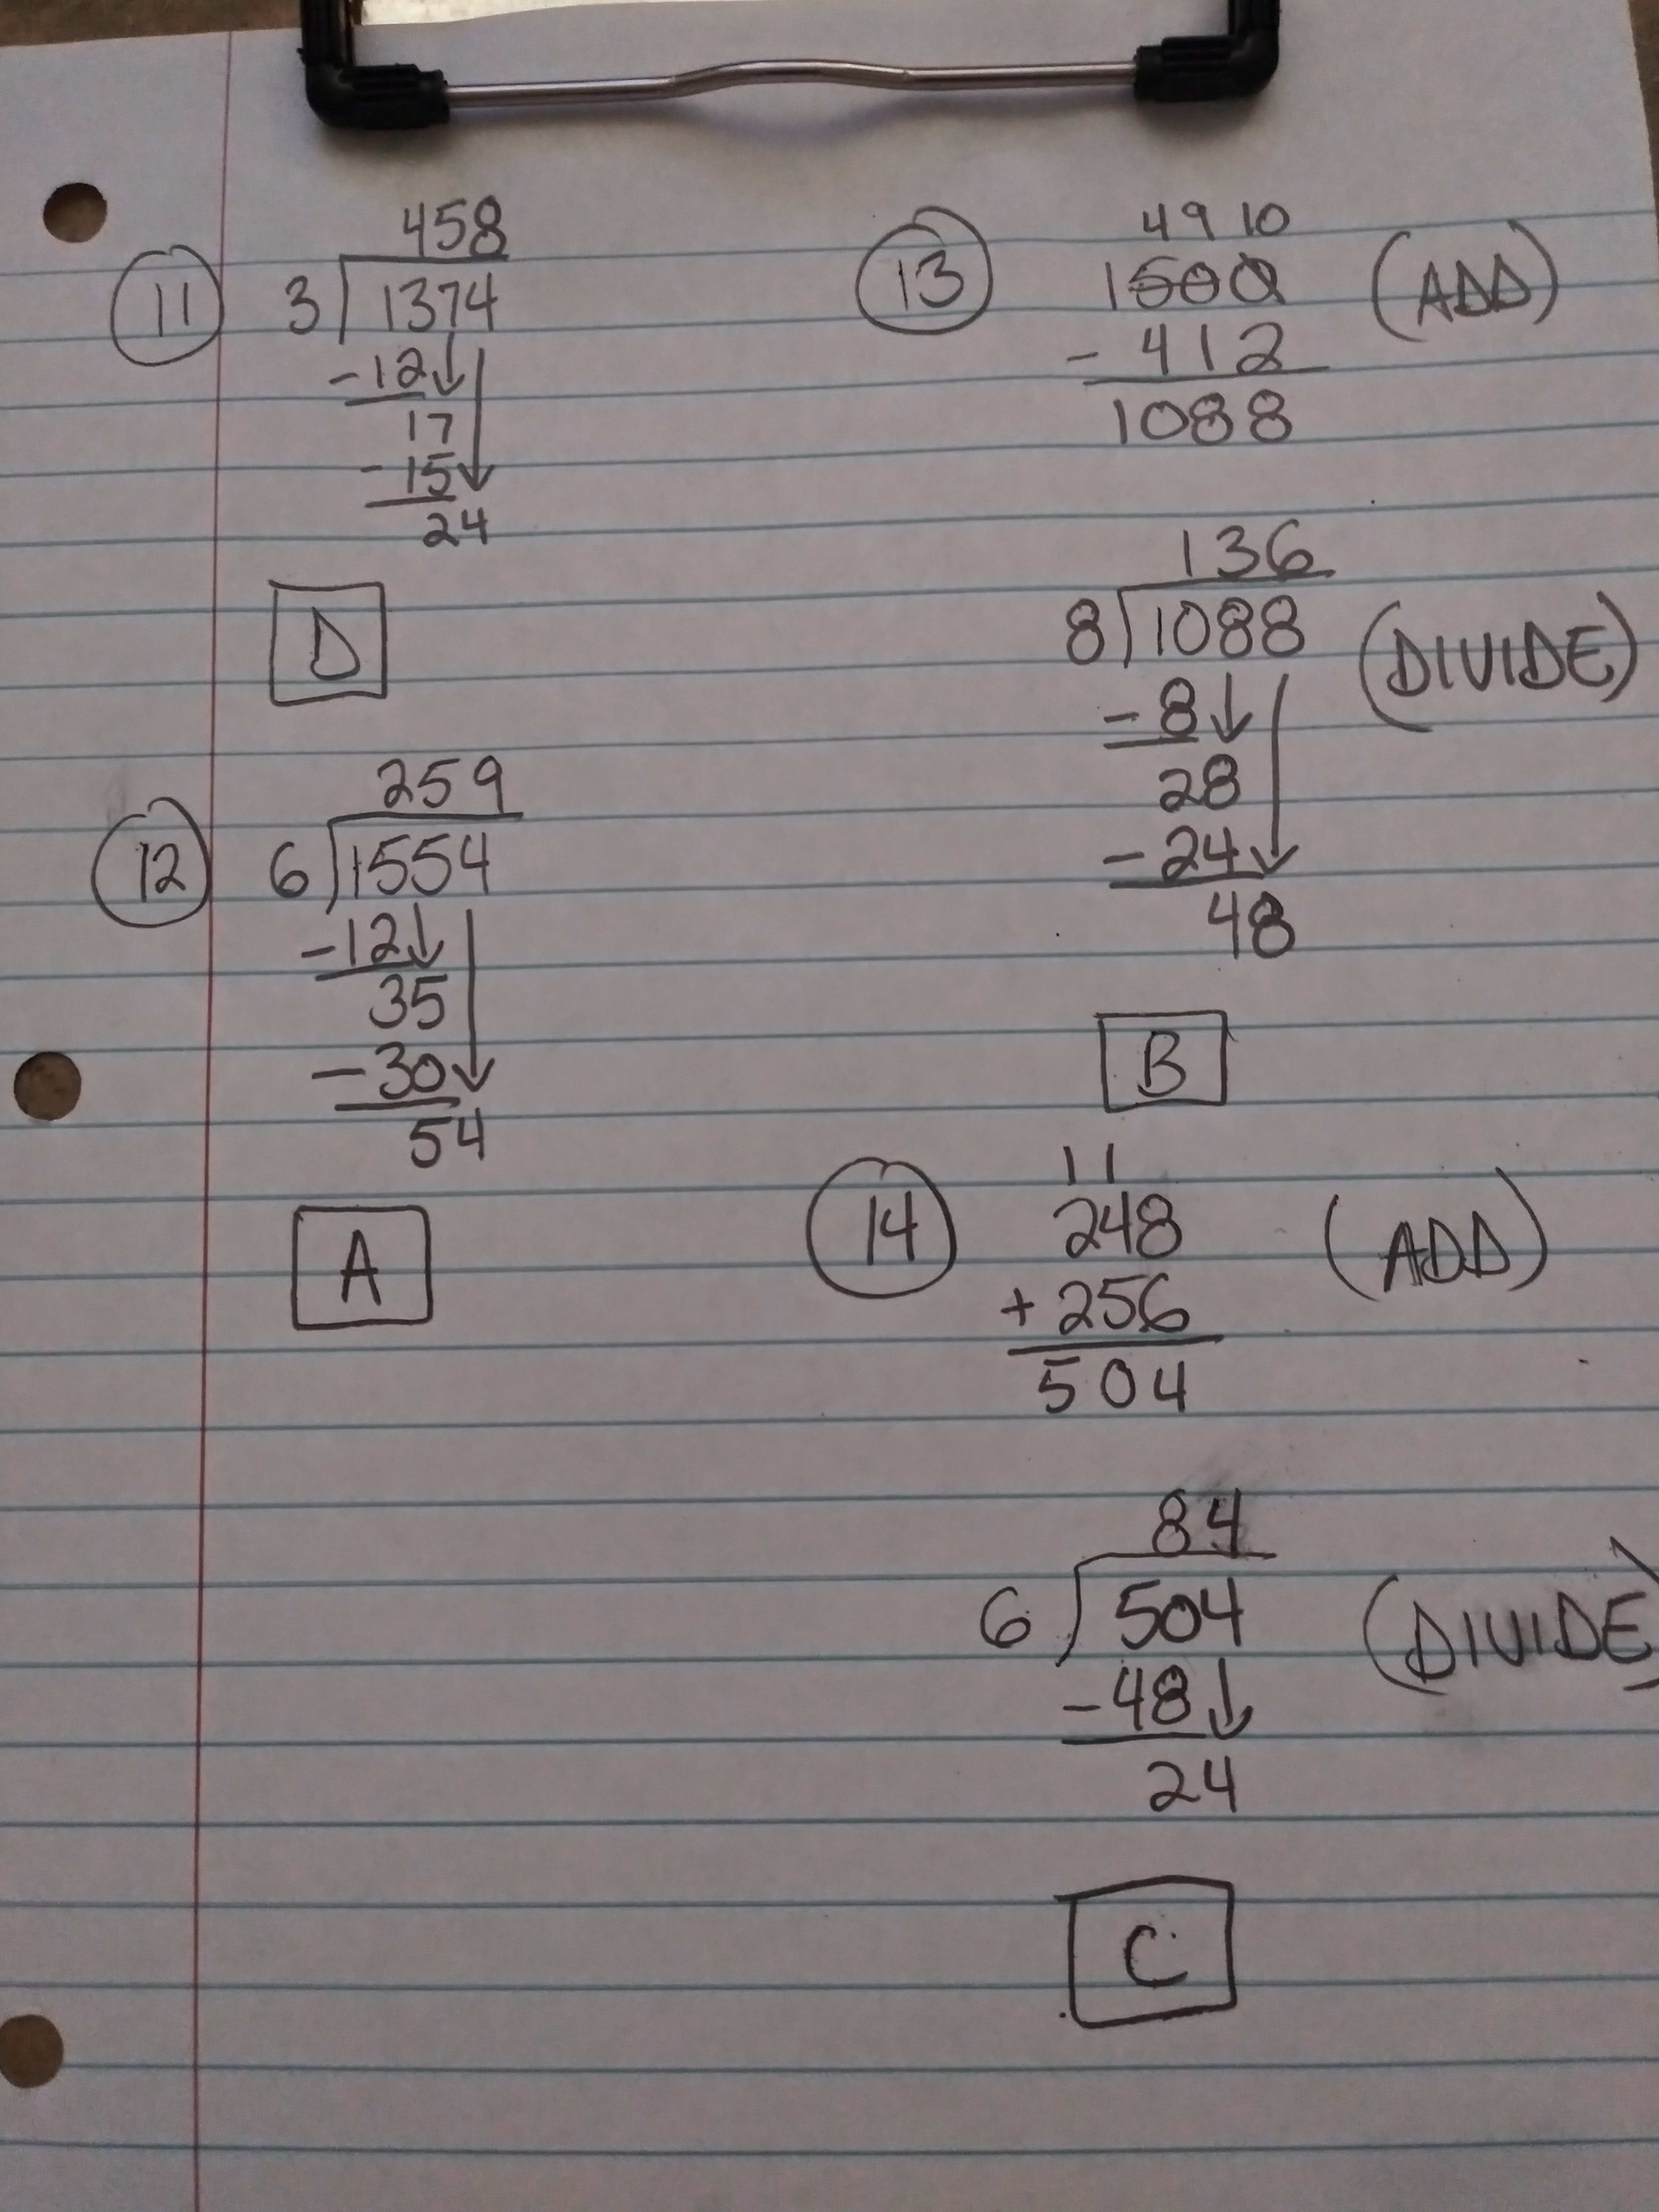 11
458
3 1374
-12
17
-15
24
D
12
259
6 1554
-12
35
-30
54
A
13
4 9 10
1500 (ADD)
- 412
1088
136
8 1088 (DIVIDE)
- 8
28
- 24
48
B
14
1 1
248 (ADD)
+ 256
504
84
6 504 (DIVIDE)
- 48
24
C